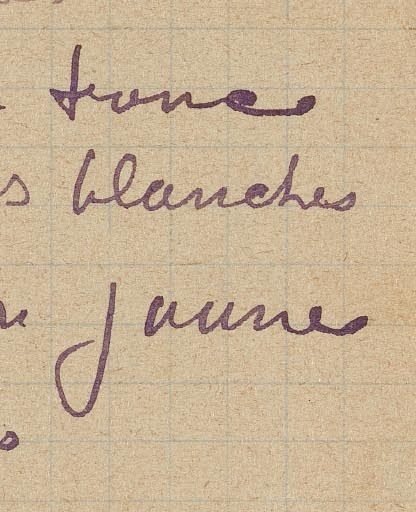 tronc
s blanches
jaune